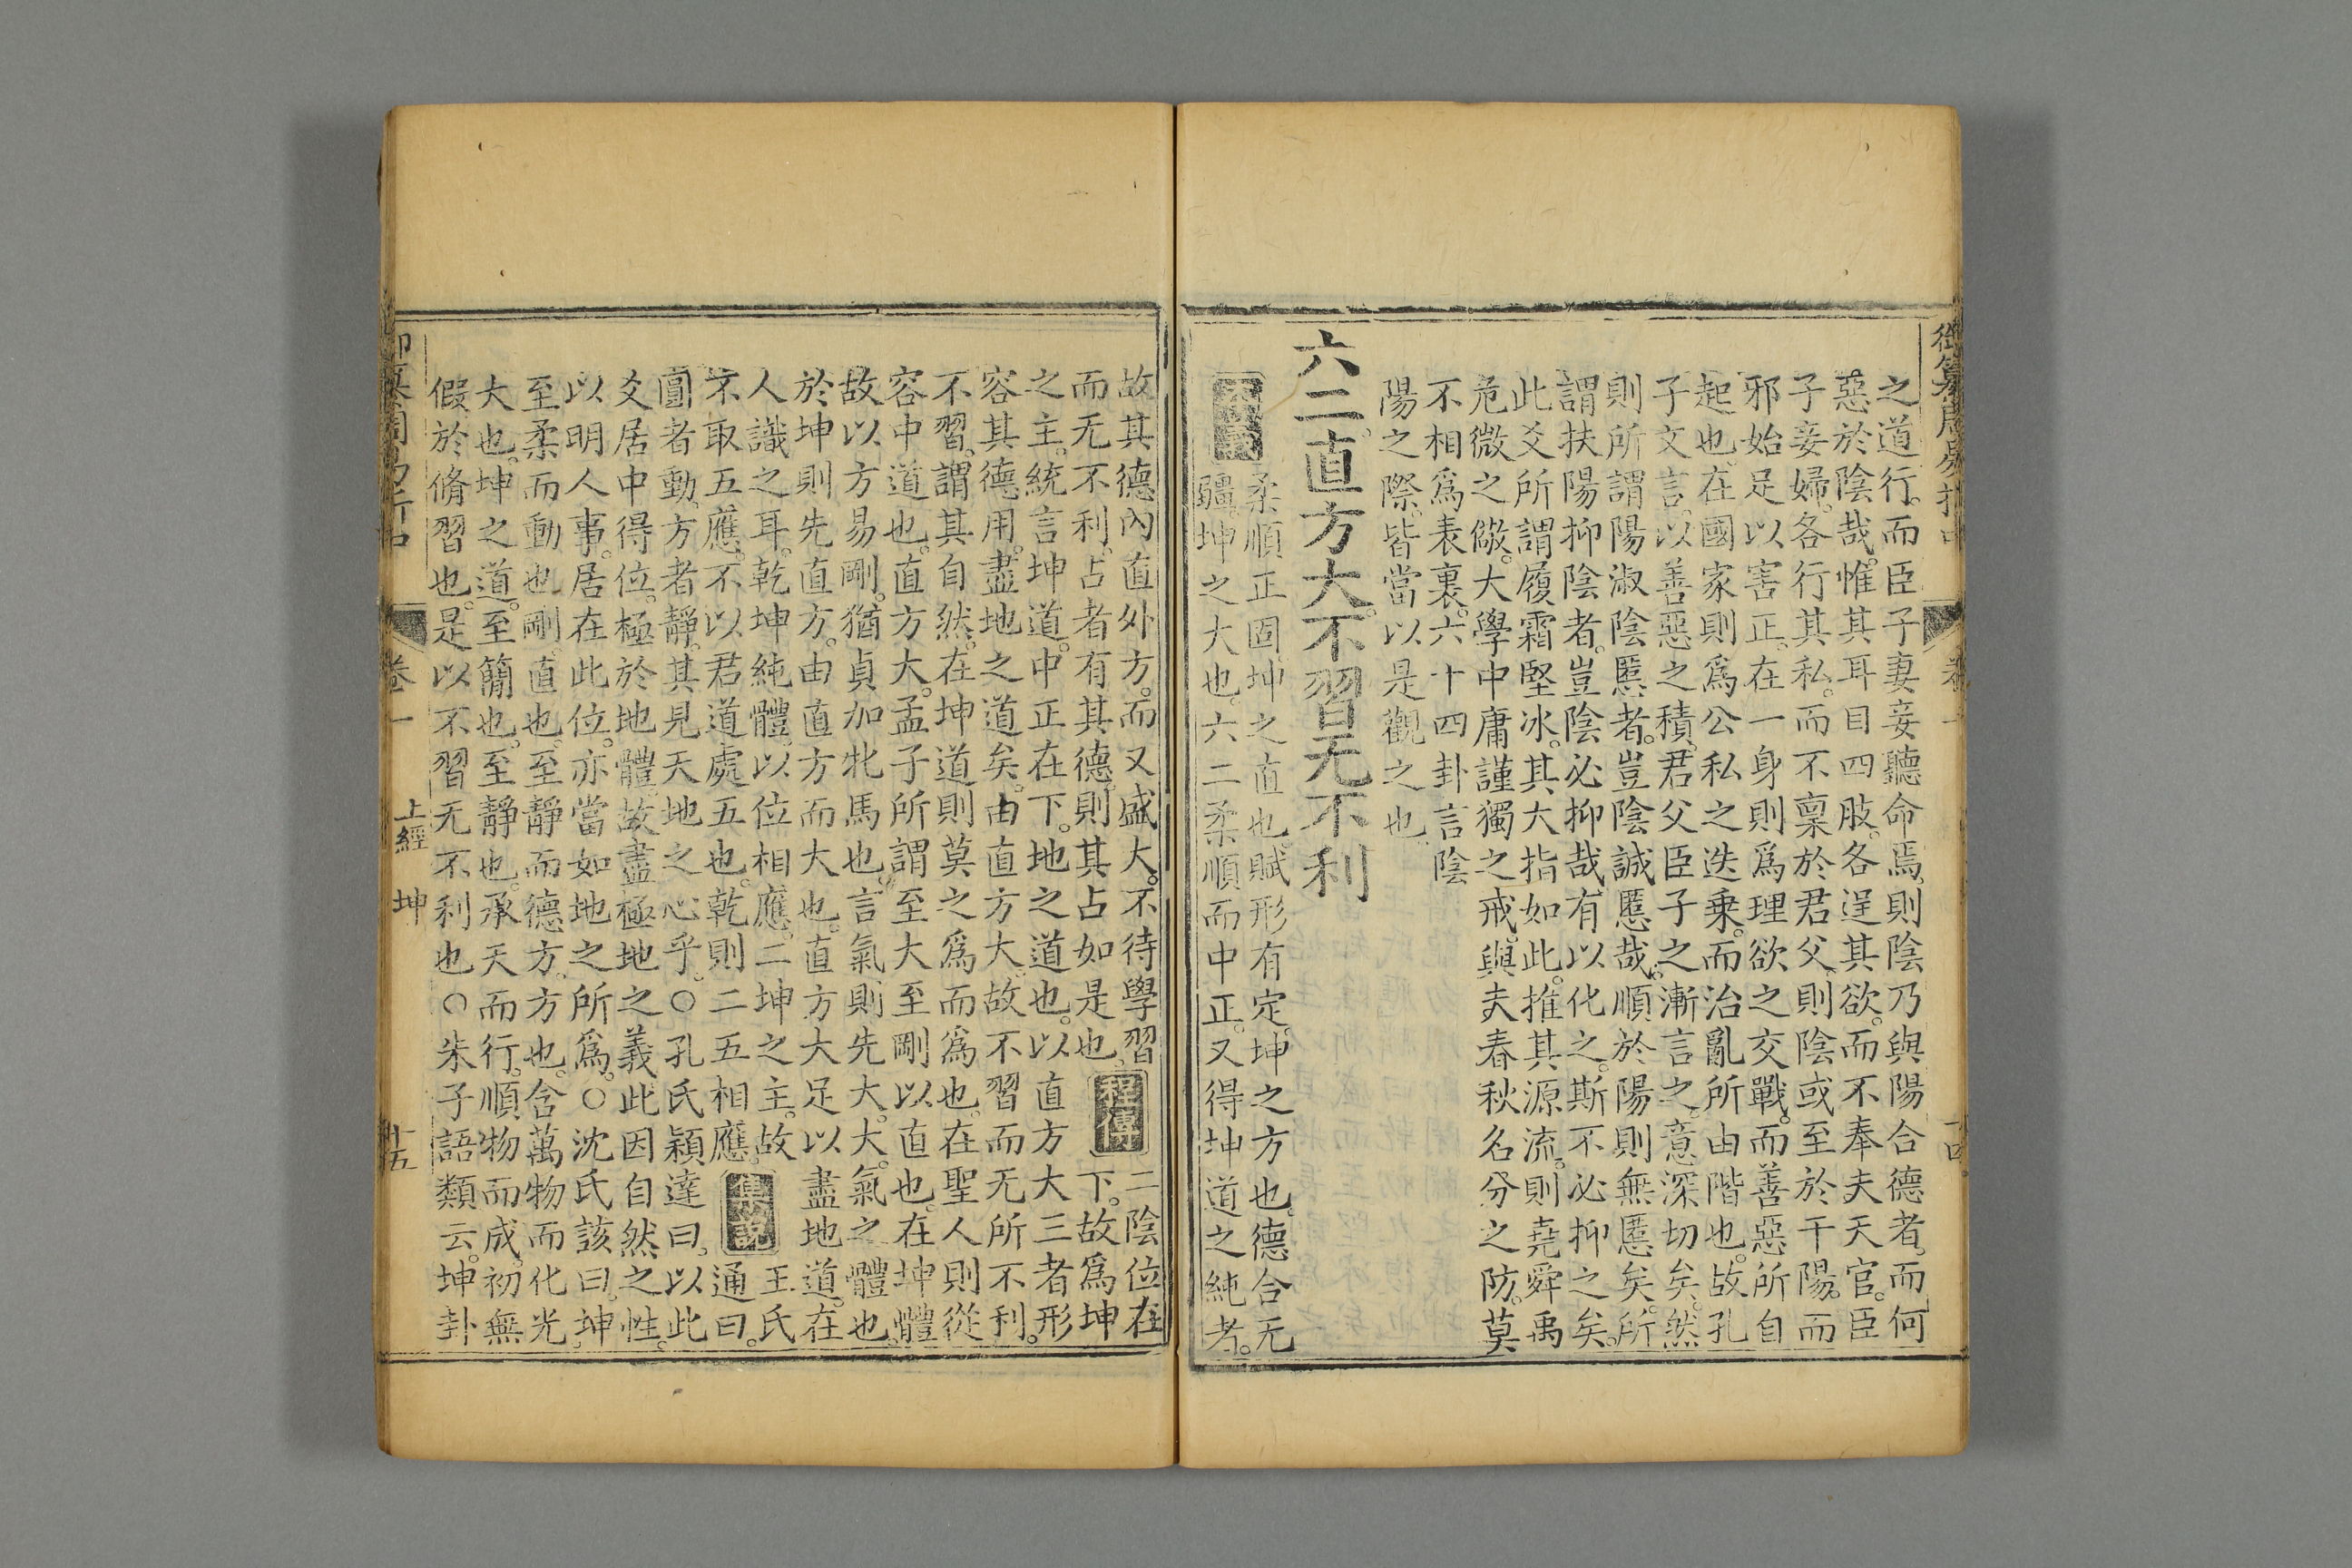 之道行。而臣子妻妾聽命焉。則陰乃與陽合德者。而何
惡於陰哉。惟其耳目四肢。各逞其欲。而不奉夫天官。臣
子妾婦。各行其私。而不稟於君父。則陰或至於干陽。而
邪始足以害正。在一身則爲理欲之交戰。而善惡所自
起也。在國家則爲公私之迭乗。而治亂所由階也。故孔
子文言。以善惡之積。君父臣子之漸言之。意深切矣。然
則所謂陽淑陰慝者。豈陰誠慝哉。順於陽則無慝矣。所
謂扶陽抑陰者。豈陰必抑哉。有以化之。斯不必抑之矣。
此爻所謂履霜堅冰。其大指如此。推其源流。則堯舜禹
危微之儆。大學中庸謹獨之戒。與夫春秋名分之防。莫
不相爲表裏。六十四卦言陰
陽之際。皆當以是觀之也。
六二。直方大。不習无不利
柔順正固。坤之直也。賦形有定。坤之方也。德合无
疆。坤之大也。六二柔順而中正。又得坤道之純者。
卷一
故其德內直外方。而又盛大。不待學習
而无不利。占者有其德。則其占如是也。程傳 二陰位在下。故爲坤
之主。統言坤道。中正在下。地之道也。以直方大三者形
容其德用。盡地之道矣。由直方大。故不習而无所不利。
不習。謂其自然。在坤道則莫之爲而爲也。在聖人則從
容中道也。直方大。孟子所謂至大至剛以直也。在坤體。
故以方易剛。猶貞加牝馬也。言氣則先大。大。氣之體也。
於坤則先直方。由直方而大也。直方大足以盡地道。在
人識之耳。乾坤純體。以位相應。二坤之主。故
不取五應。不以君道處五也。乾則二五相應。集說 王氏通曰。
圓者動。方者靜。其見天地之心乎。○孔氏穎達曰。以此
爻居中得位。極於地體。故盡極地之義。此因自然之性。
以明人事。居在此位。亦當如地之所爲。○沈氏該曰。坤
至柔而動也剛。直也。至靜而德方。方也。含萬物而化光。
大也。坤之道。至簡也。至靜也。承天而行。順物而成。初無
假於脩習也。是以不習无不利也。○朱子語類云。坤卦
卷一 上經 坤 十五